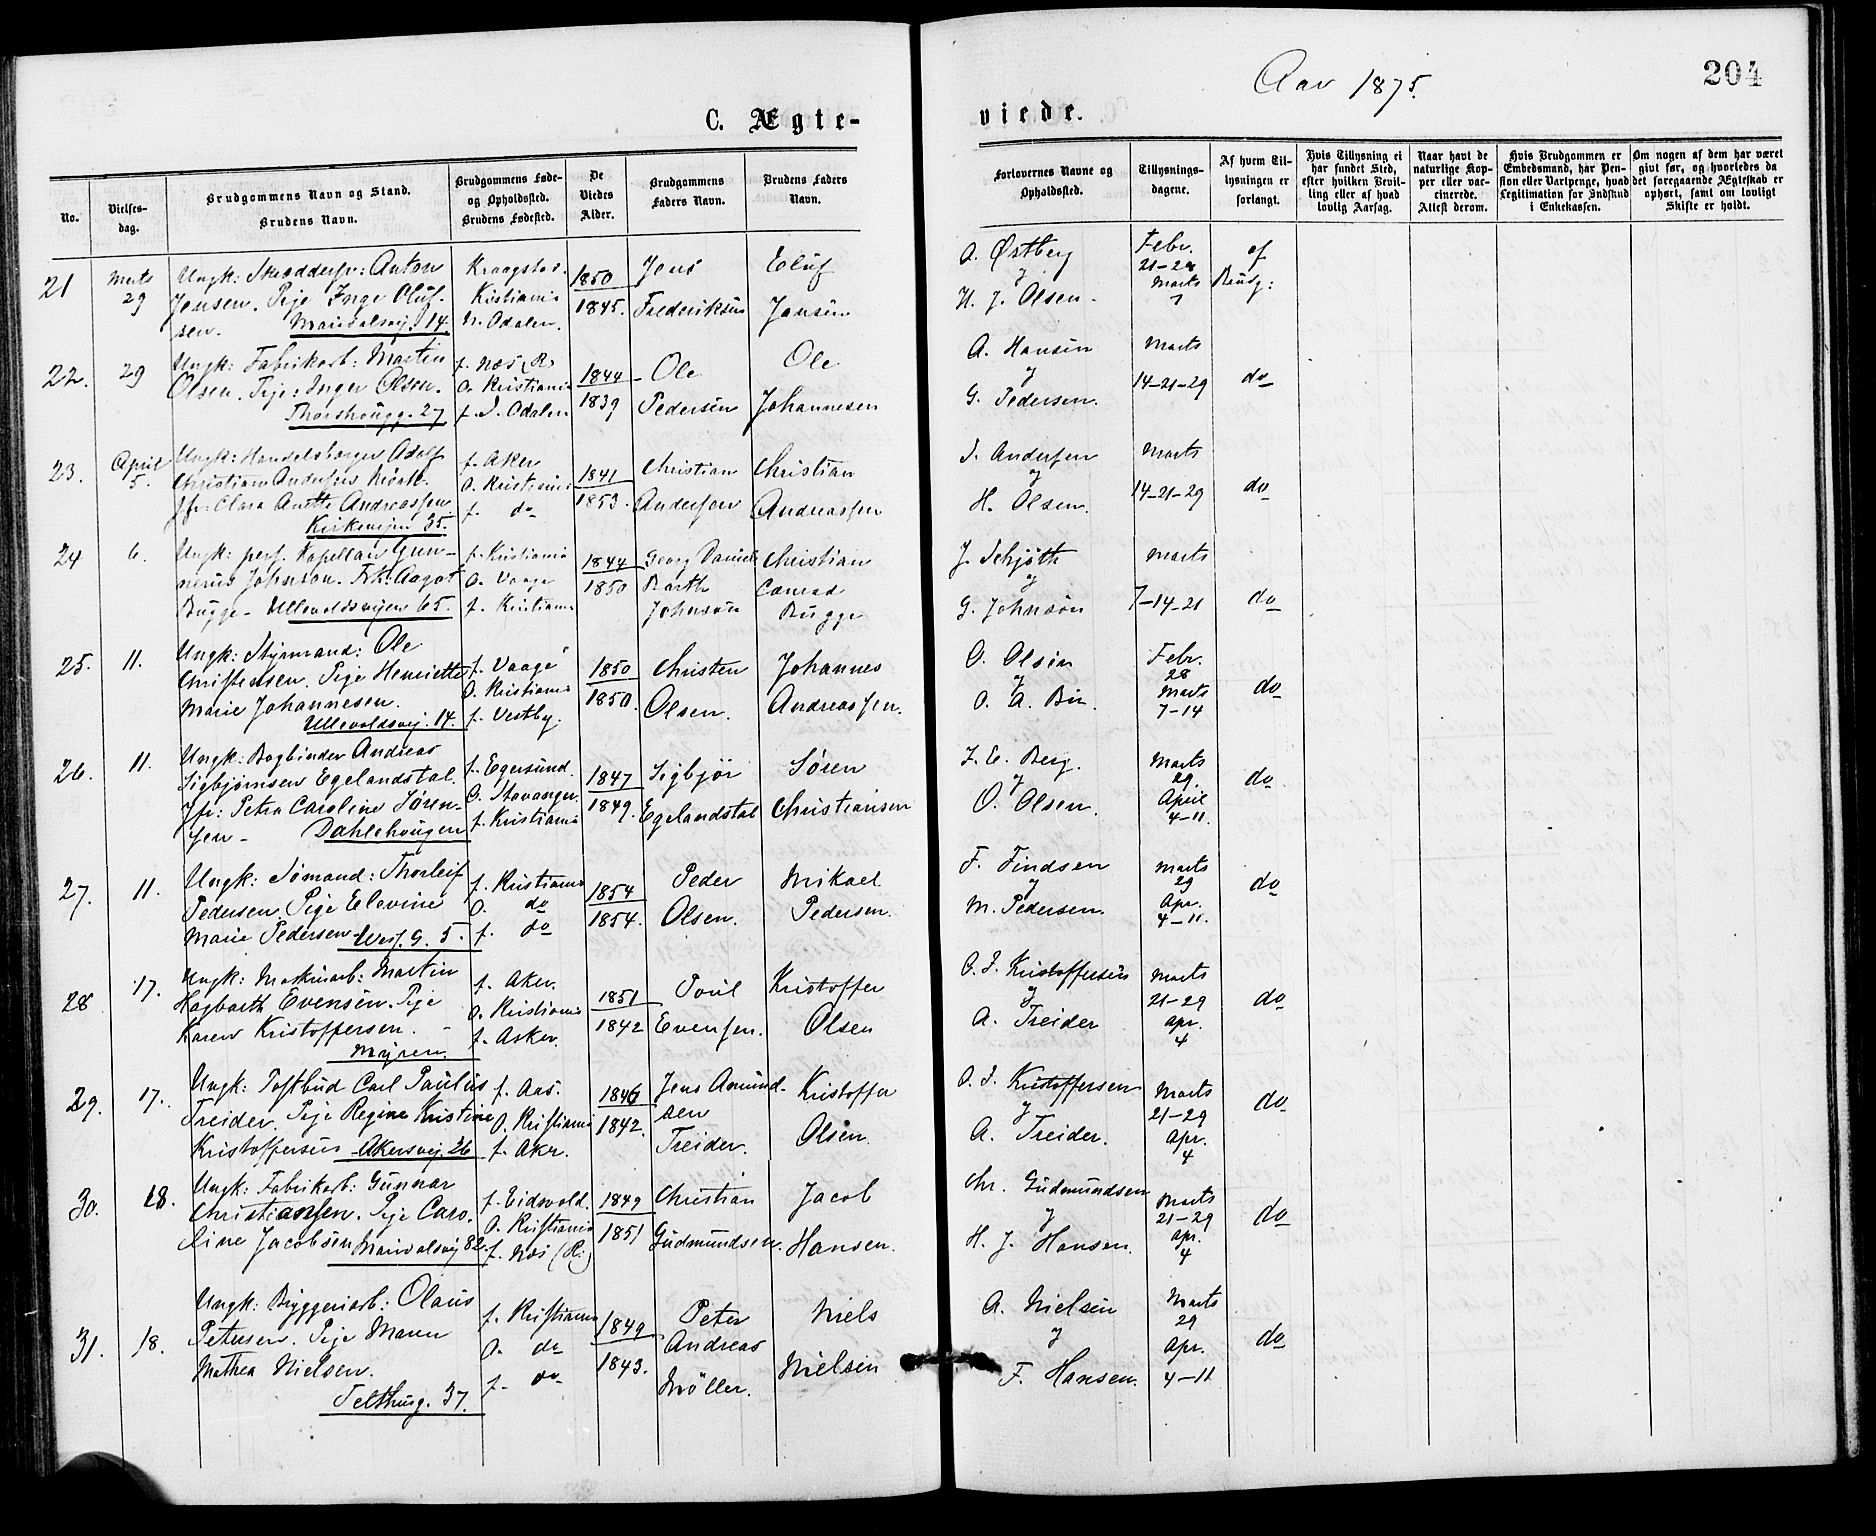 Aar 1875.
204
C. Ægte-
viede.
No.
Vielses-
dag.
Brudgommens Navn og Stand.
Brudens Navn.
Brudgommens Føde-
og Opholdssted.
Brudens Fødested.
De
Viedes
Alder.
Brudgommens
Faders Navn.
Brudens Faders
Navn.
Forlovernes Navne og
Opholdssted.
Tillysnings-
dagene.
Af hvem Til-
lysningen er
forlangt.
Hvis Tillysning ei
har fundet Sted,
efter hvilken Bevil-
ling eller af hvad
lovlig Aarsag.
Naar havt de
naturlige Kop-
per eller vac-
cinerede.
Attest derom.
Hvis Brudgommen er
Embedsmand, har Pen-
sion eller Vartpenge, hvad
Legitimation for Indskud
i Enkekassen.
Om nogen af dem har været
givt før, og hvorledes da
det foregaaende Ægteskab er
ophørt, samt om lovligt
Skifte er holdt.
21
Marts
29
Ungk: Skræddersv: Anton
Jensen. Pige Inge Oluf-
sen. Maridalsvej. 14.
Kraagstad.
Kristiania
N. Odalen.
1850
1845.
Jens
Frederiksen
Eluf
Jensen
O. Østberg
&
H. J. Olsen
Febr.
21-28
Marts
7
af
Brudg:
22.
29
Ungk: Fabrikarb: Martin
Olsen. Pige: Inger Olsen.
Thorshougg. 27
f. Næs (R.)
O. Kristiania
f. S. Odalen
1844
1839
Ole
Pedersen
Ole
Johannesen
A. Hansen
&
G. Pedersen.
Marts
14-21-29
do
23.
April
5.
Ungk: Handelsborger Adolf
Christian Andersen Mörk.
Jfr: Clara Anette Andreassen
Kirkevejen 35.
f. Aker
O. Kristiania
f. do
1841
1853.
Christian
Andersen
Christian
Andreassen
S. Andersen
&
H. Olsen.
Marts
14-21-29
do
24
6.
Ungk: pers. Kapellan Gun-
nerus Johnson. Frk. Aagot
Bugge- Ullevoldsvejen 65.
f. Kristiania
O. Vaage
f. Kristiania
1844
1850
Georg Daniel
Barth
Johnson
Christian
Conrad
Bugge
J. Schjøth
&
G. Johnson
Marts
7-14-21
do
25.
11.
Ungk: Styrmand: Ole
Christensen. Pige Henriette
Marie Johannesen.
Ullevoldsvej. 14.
f. Vaage
O. Kristiania
f. Vestby.
1850
1850.
Christen
Olsen.
Johannes
Andreassen.
O. Olsen
&
O. A. Bir.
Febr.
28
Marts
7-14
do
26.
11.
Ungk: Bogbinder Andreas
Sigbjørnsen Egelandsdal.
Jfr: Petra Caroline Søren-
sen - Dahlehougen
f. Egersund.
O. Stavanger.
f. Kristiania
1847
1849.
Sigbjør
Egelandsdal
Søren
Christiansen
J. E. Berg.
&
O. Olsen.
Marts
29
April
4-11.
do
27.
11.
Ungk: Sømand: Thorleif
Pedersen. Pige Elevine
Marie Pedersen - Wess. G. 5.
f. Kristiania
O. do
f. do
1854
1854.
Peder
Olsen.
Mikael
Pedersen.
F. Findsen
&
M. Pedersen.
Marts
29
Apr.
4-11.
do
28
17.
Ungk: Maskinarb: Martin
Hagbarth Evensen. Pige
Karen Kristoffersen. -
Myren.
f. Aker.
O. Kristiania
f. Asker.
1851
1842
Poul
Evensen.
Kristoffer
Olsen
O. S. Kristoffersen
&
A. Treider
Marts
21-29
Apr.
4
do
29.
17.
Ungk: Postbud Carl Paulus
Treider. Pige Regine Kristine
Kristoffersen - Akersvej. 26
f. Aas.
O. Kristiania
f. Aker.
1846
1842.
Jens Amund-
sen
Treider.
Kristoffer
Olsen.
O. S. Kristoffersen
&
A. Treider.
Marts
21-29
Apr.
4
do
30.
18.
Ungk: Fabrikarb: Gunnar
Christiansen. Pige Caro-
line Jacobsen Maridalsvej 82.
f. Eidsvold.
O. Kristiania
f. Næs (R.)
1849
1851
Christian
Gudmundsen.
Jacob
Hansen.
Chr. Gudmundsen
&
H. J. Hansen.
Marts
21-29
Apr.
4
do
31.
18.
Ungk: Bryggeriarb: Olaus
Petersen. Pige Maren
Mathea Nielsen.
Telthusg. 37.
f. Kristiania
O. do
f. do
1849
1843.
Peter
Andreas
Möller.
Niels
Nielsen
A. Nielsen
&
F. Hansen.
Marts
29
Apr.
4-11
do